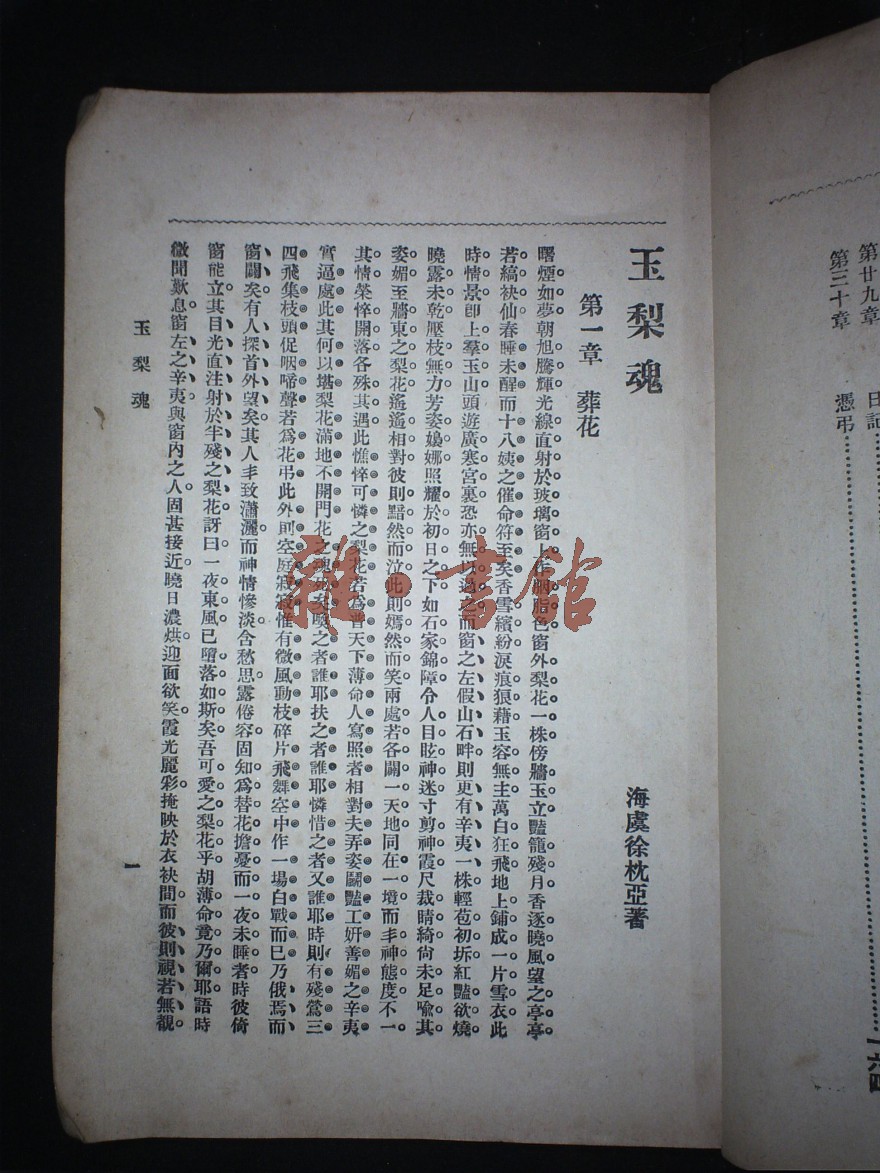 第廿九章 日記
第三十章 憑弔……………………一六四
玉梨魂
海虞徐枕亞著
第一章 葬花
曙煙如夢朝旭騰輝光線直射於玻璃窗上作胭脂色窗外梨花一株傍牆玉立豔籠殘月香逐曉風望之亭亭
若縞袂仙春睡未醒而十八姨之催命符至矣香雪繽紛淚痕狼藉玉容無主萬白狂飛地上鋪成一片雪衣此
時情景卽上羣玉山頭遊廣寒宮裏恐亦無以過之而窗之左假山石畔則更有辛夷一株輕苞初坼紅豔欲燒
曉露未乾壓枝無力芳姿嬝娜照耀於初日之下如石家錦障令人目眩神迷寸剪神霞尺裁晴綺尙未足喻其
姿媚至牆東之梨花遙遙相對彼則黯然而泣此則嫣然而笑兩處若各闢一天地同在一境而丰神態度不一
其情榮悴開落各殊其遇此憔悴可憐之梨花若爲普天下薄命人寫照者相對夫弄姿鬭豔工妍善媚之辛夷
實逼處此其何以堪梨花滿地不開門花之魂死矣喚之者誰耶扶之者誰耶憐惜之者又誰耶時則有殘鶯三
四飛集枝頭促咽啼聲若爲花弔此外則空庭寂寂惟有微風動枝碎片飛舞空中作一場白戰而已乃俄焉而
窗闢矣有人探首外望矣其人丰致瀟灑而神情慘淡含愁思露倦容固知爲替花擔憂而一夜未睡者時彼倚
窗能立其目光直注射於半殘之梨花訝曰一夜東風已墮落如斯矣吾可愛之梨花乎胡薄命竟乃爾耶語時
微聞歎息窗左之辛夷與窗內之人固甚接近曉日濃烘迎面欲笑霞光麗彩掩映於衣袂間而彼則視若無覩
玉梨魂
一
雜·書館